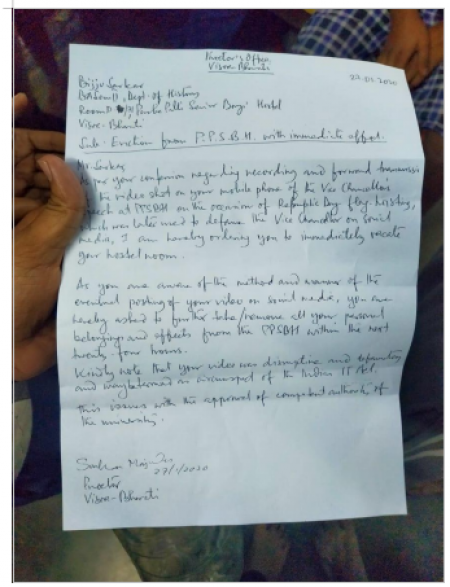 Proctor's Office
Visva-Bharati
27.01.2020
Bijju Sarkar
BA Sem II, Dept. of History
Room Purba Palli Senior Boys' Hostel
Visva-Bharati
Sub: Eviction from P.P.S.B.H. with immediate effect.
Mr. Sarkar
As per your confession regarding recording and forward transmission
the video shot on your mobile phone of the Vice Chancellor's
speech at PPSBH on the occasion of Republic Day flag hoisting,
which was later used to defame the Vice Chancellor on social
media, I am hereby ordering you to immediately vacate
your hostel room.
As you are aware of the method and manner of the
eventual posting of your video on social media, you are
hereby asked to further take/remove all your personal
belongings and effects from the PPSBH within the next
twenty four hours.
Kindly note that your video was disruptive and
and may be termed as of the Indian IT Act.
This issues with the approval of competent authority of
the university.
27/1/2020
Proctor
Visva-Bharati